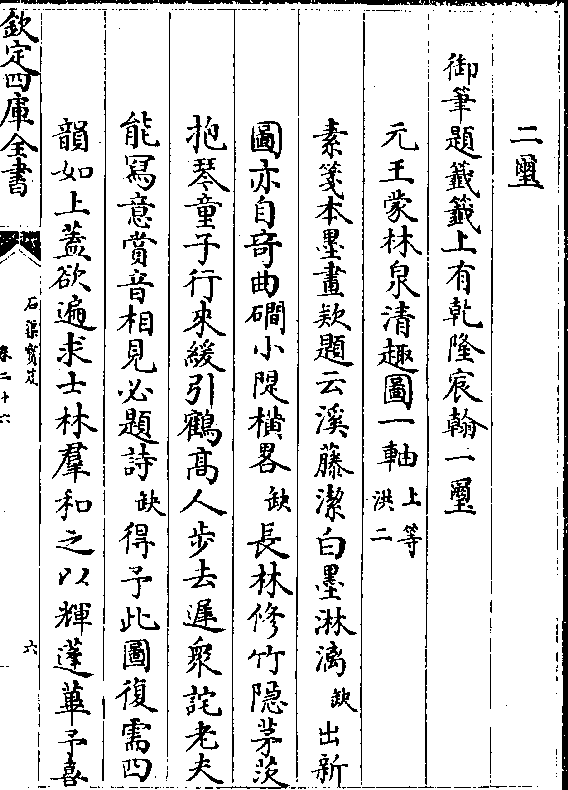 二璽
御筆題籤籤上有乾隆宸翰一璽
元王蒙林泉清趣圖一軸上等洪二
素箋本墨畫欵題云溪藤潔白墨淋漓缺出新
圖亦自奇曲磵小隄橫畧缺長林修竹隐茅茨
抱琴童子行來緩引鶴髙人步去遲衆詫老夫
能冩意賞音相見必題詩缺得予此圖復需四
韻如上蓋欲遍求士林羣和之以輝蓬蓽予喜
欽定四庫全書
石渠寳笈
卷二十六
六